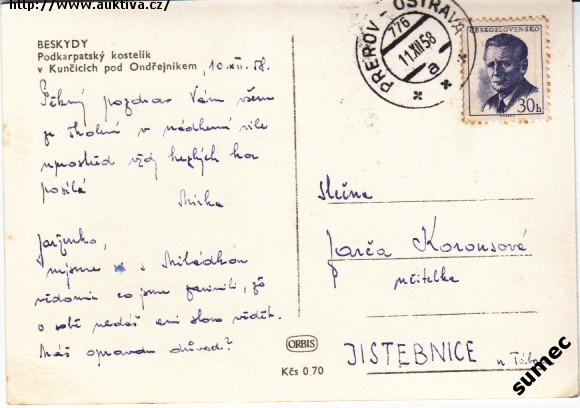 http://www.auktiva.cz/
BESKYDY
Podkarpatský kostelík
v Kunčicích pod Ondřejníkem, 10.XII.58.
Pěkný pozdrav Vám všem
ze školení v nádherné vile
uprostřed hezkých hor
posílá
Mirka
Jarčinko,
nejsme si s Miládkou
vědomi co jsme, že
o sobě nedáš ani slova vědět.
Máš opravdu důvod?
PŘEROV - OSTRAVA
776
11.XII.58
a
ČESKOSLOVENSKO
30h
Slečna
Jarča
učitelka
JISTEBNICE u Táb
ORBIS
Kčs 0,70
sumec